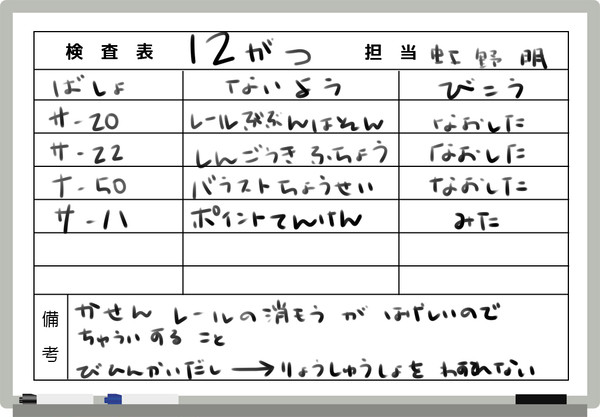 検査表 12がつ 担当 虹野 明
ばしょ ないよう びこう
サ-20 レールぶぶんはそん なおした
サ-22 しんごうき ふちょう なおした
ナ-50 バラストちょうせい なおした
サ-11 ポイントてんけん みた
備考
かせん レールの消もう が はげしいので
ちゅういする こと
びひんかいだし → りょうしゅうしょを わすれない